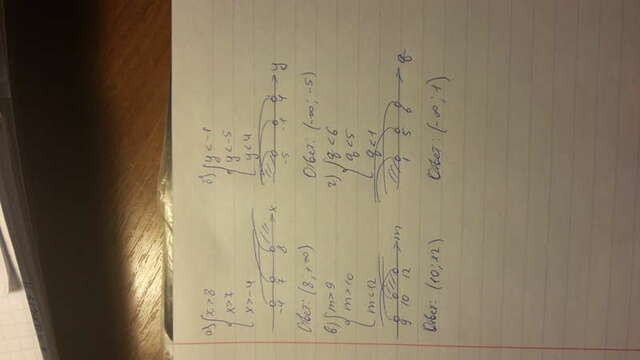 а) { x > 8
x > 7
x > -4
-4 7 8 x
Ответ: (8; +∞)
б) { y < -1
y < -5
y < 4
-5 -1 4 y
Ответ: (-∞; -5)
в) { m > 9
m > 10
m < 12
9 10 12 m
Ответ: (10; 12)
г) { q < 6
q < 5
q < 1
1 5 6 q
Ответ: (-∞; 1)